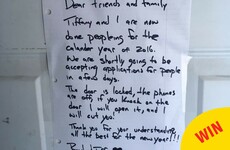 Dear friends and family
Tiffany and I are now
done peopleing for the
calander year of 2016.
We are shortly going to be
accepting applications for people
in a few days.
The door is locked, the phones
are off, if you knock on the
door I will open it, and I
will cut you!
Thank you for your understanding,
all the best for the new year!!!
WIN